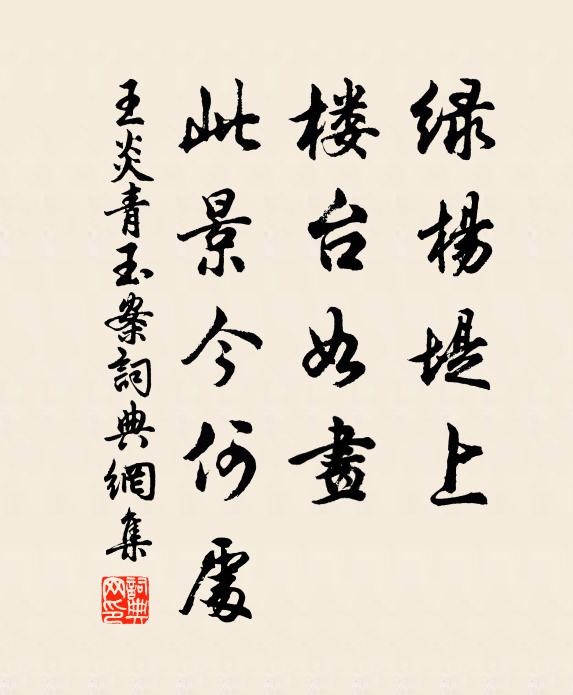 绿杨堤上
楼台如畫
此景今何處
王炎青玉案詞典網集
詞典网印